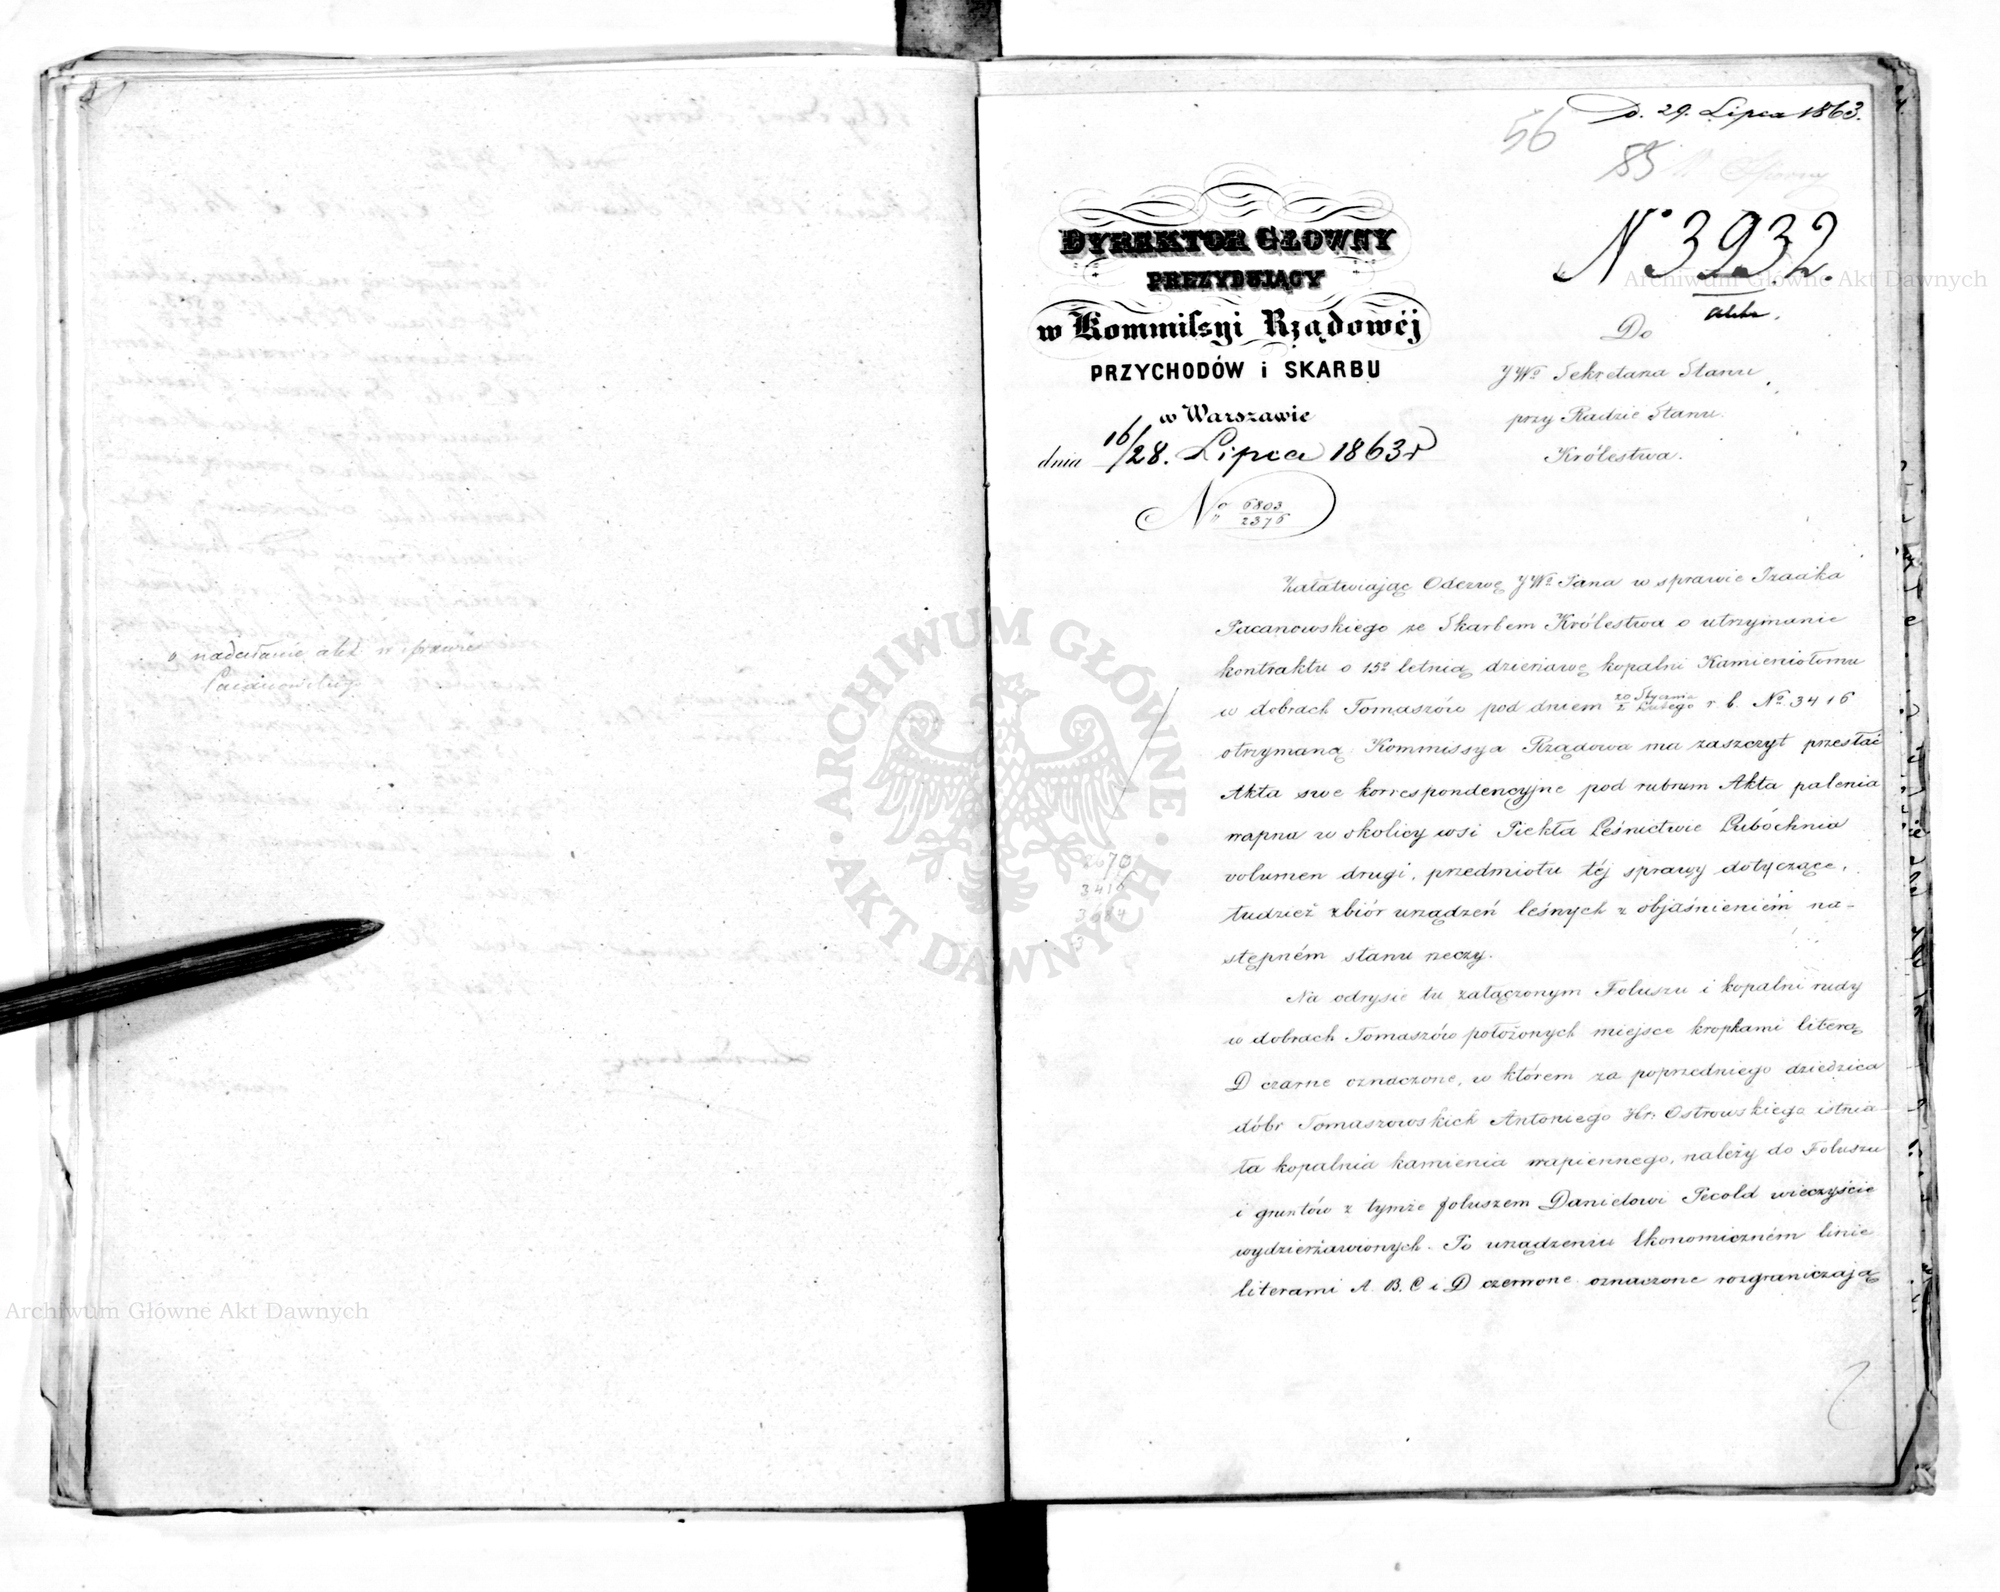 o nadesłanie akt w sprawie
Pacanowskiego
D. 29. Lipca 1863.
56
85
N° 3932.
DYREKTOR GŁOWNY
PREZYDUJĄCY
w Kommissyi Rządowéj
PRZYCHODÓW i SKARBU
w Warszawie
dnia 16/28. Lipca 1863 r
N° 6803/2376
Do
JWo Sekretarza Stanu
przy Radzie Stanu
Królestwa.
Załatwiając Odezwę JWo Pana w sprawie Izaaka
Pacanowskiego ze Skarbem Królestwa o utrzymanie
kontraktu o 15o letnią dzierżawę kopalni Kamieniołomu
w dobrach Tomaszów pod dniem 20 Stycznia/1 Lutego r. b. No 3416
otrzymaną, Kommissya Rządowa ma zaszczyt przesłać
Akta swe korrespondencyjne pod rubrum Akta palenia
wapna w okolicy wsi Piekła Leśnictwie Lubochnia
volumen drugi, przedmiotu téj sprawy dotyczące,
tudzież zbiór urządzeń leśnych z objaśnieniem na-
stępném stanu rzeczy.
2670
3416
3684
3
Na odrysie tu załączonym Foluszu i kopalni rudy
w dobrach Tomaszów położonych miejsce kropkami literą
D czarne oznaczone, w którem za poprzedniego dziedzica
dóbr Tomaszowskich Antoniego Hr: Ostrowskiego istnia-
ła kopalnia kamienia wapiennego, należy do Foluszu
i gruntów z tymże foluszem Danielowi Pecold wieczyście
wydzierżawionych. Po urządzeniu Ekonomiczném linie
literami A. B. C i D czerwone oznaczone rozgraniczają
Archiwum Główne Akt Dawnych
ARCHIWUM GŁÓWNE · AKT DAWNYCH ·
Archiwum Główne Akt Dawnych